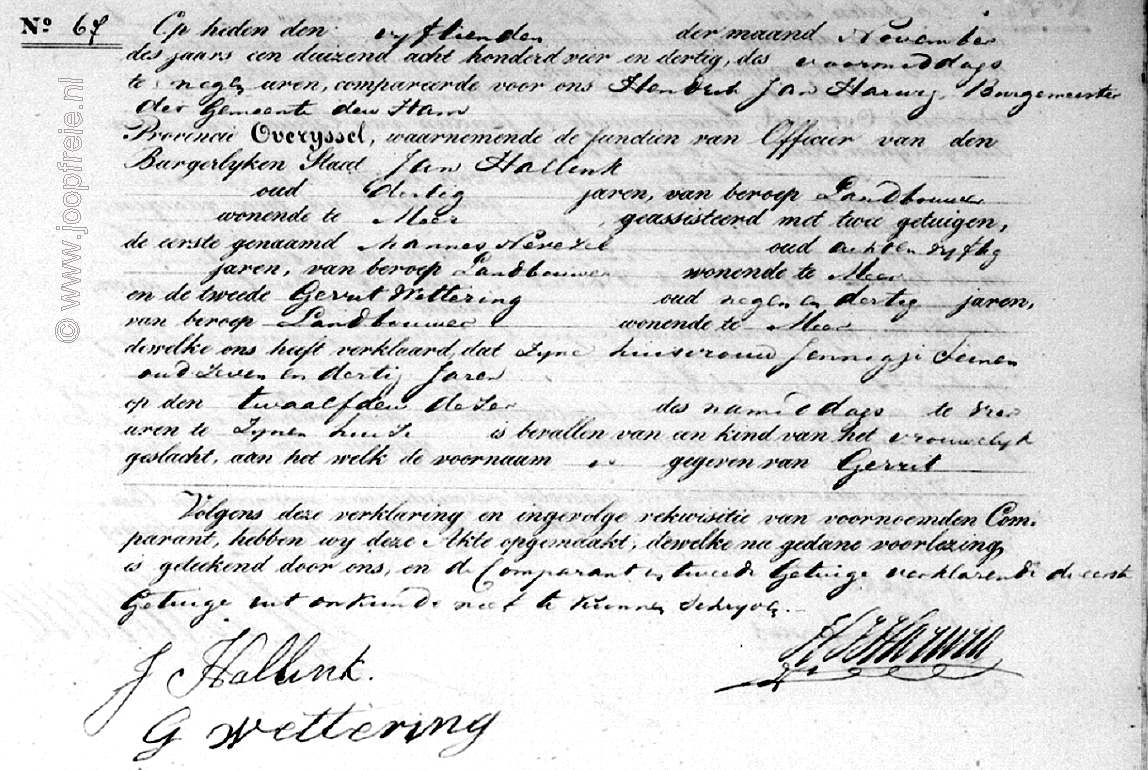 © www.joopfreie.nl
Nº 67 Op heden den vyftienden der maand November
des jaars een duizend acht honderd vier en dertig, des voormiddags
te negen uren, compareerde voor ons Hendrik Jan Harwig, Burgemeester
der Gemeente den Ham
Provincie Overyssel, waarnemende de functien van Officier van den
Burgerlyken Staat Jan Hallink
oud dertig jaren, van beroep Landbouwer
wonende te Meer, geassisteerd met twee getuigen,
de eerste genaamd Mannes oud acht en vyftig
jaren, van beroep Landbouwer wonende te Meer
en de tweede Gerrit Wettering oud negen en dertig jaren,
van beroep Landbouwer wonende te Meer
dewelke ons heeft verklaard, dat Zyne huisvrouw Jennegje
oud Zeven en dertig Jaren
op den twaalfden dezer des namiddags te vier
uren te Zynen huize is bevallen van een kind van het vrouwelyk
geslacht, aan het welk de voornaam is gegeven van Gerrit
Volgens deze verklaring en ingevolge rekwisitie van voornoemden Com-
parant, hebben wy deze Akte opgemaakt, dewelke na gedane voorlezing,
is geteekend door ons, en de Comparant en tweede Getuige verklarende de eerste
Getuige uit onkunde niet te kunnen schryven.
J Hallink.
G Wettering